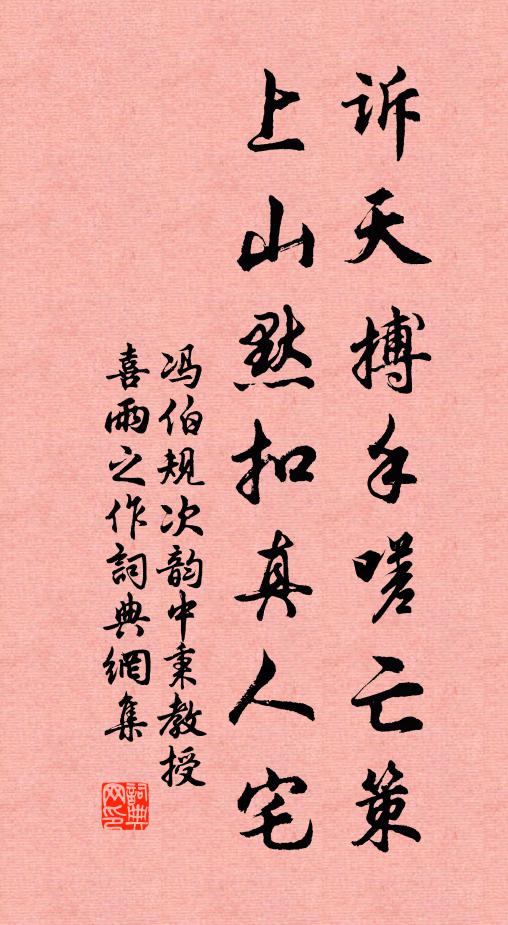 诉天搏手嗟亡策
上山默扣真人宅
冯伯规次韵中秉教授
喜雨之作詞典網集
詞典网印